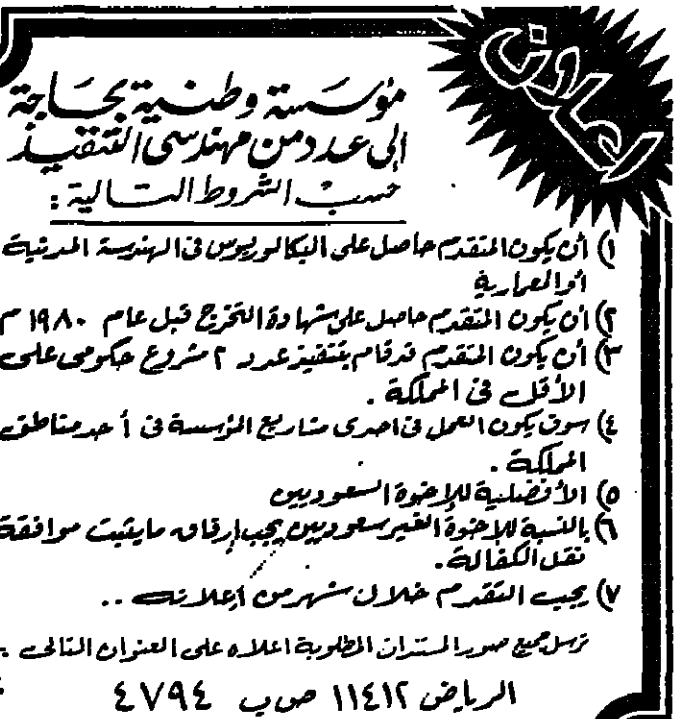 إعلان
مؤسسة وطنية بحاجة
إلى عدد من مهندسى التنفيذ
حسب الشروط التالية :
١) أن يكون المتقدم حاصل على البكالوريوس فى الهندسة المدنية
أو المعمارية
٢) ان يكون المتقدم حاصل على شهادة التخرج قبل عام ١٩٨٠ م
٣) أن يكون المتقدم قد قام بتنفيذ عدد ٢ مشروع حكومى على
الأقل فى المملكة .
٤) سوف يكون العمل فى احدى مشاريع المؤسسة فى أحد مناطق
المملكة .
٥) الأفضلية للإخوة السعوديين
٦) بالنسبة للاخوة الغير سعوديين يجب إرفاق ما يثبت موافقة
نقل الكفالة .
٧) يجب التقدم خلال شهر من إعلانه ..
ترسل جميع صور المستندات المطلوبة اعلاه على العنوان التالى :
الرياض ١١٤١٢ ص ب ٤٧٩٤